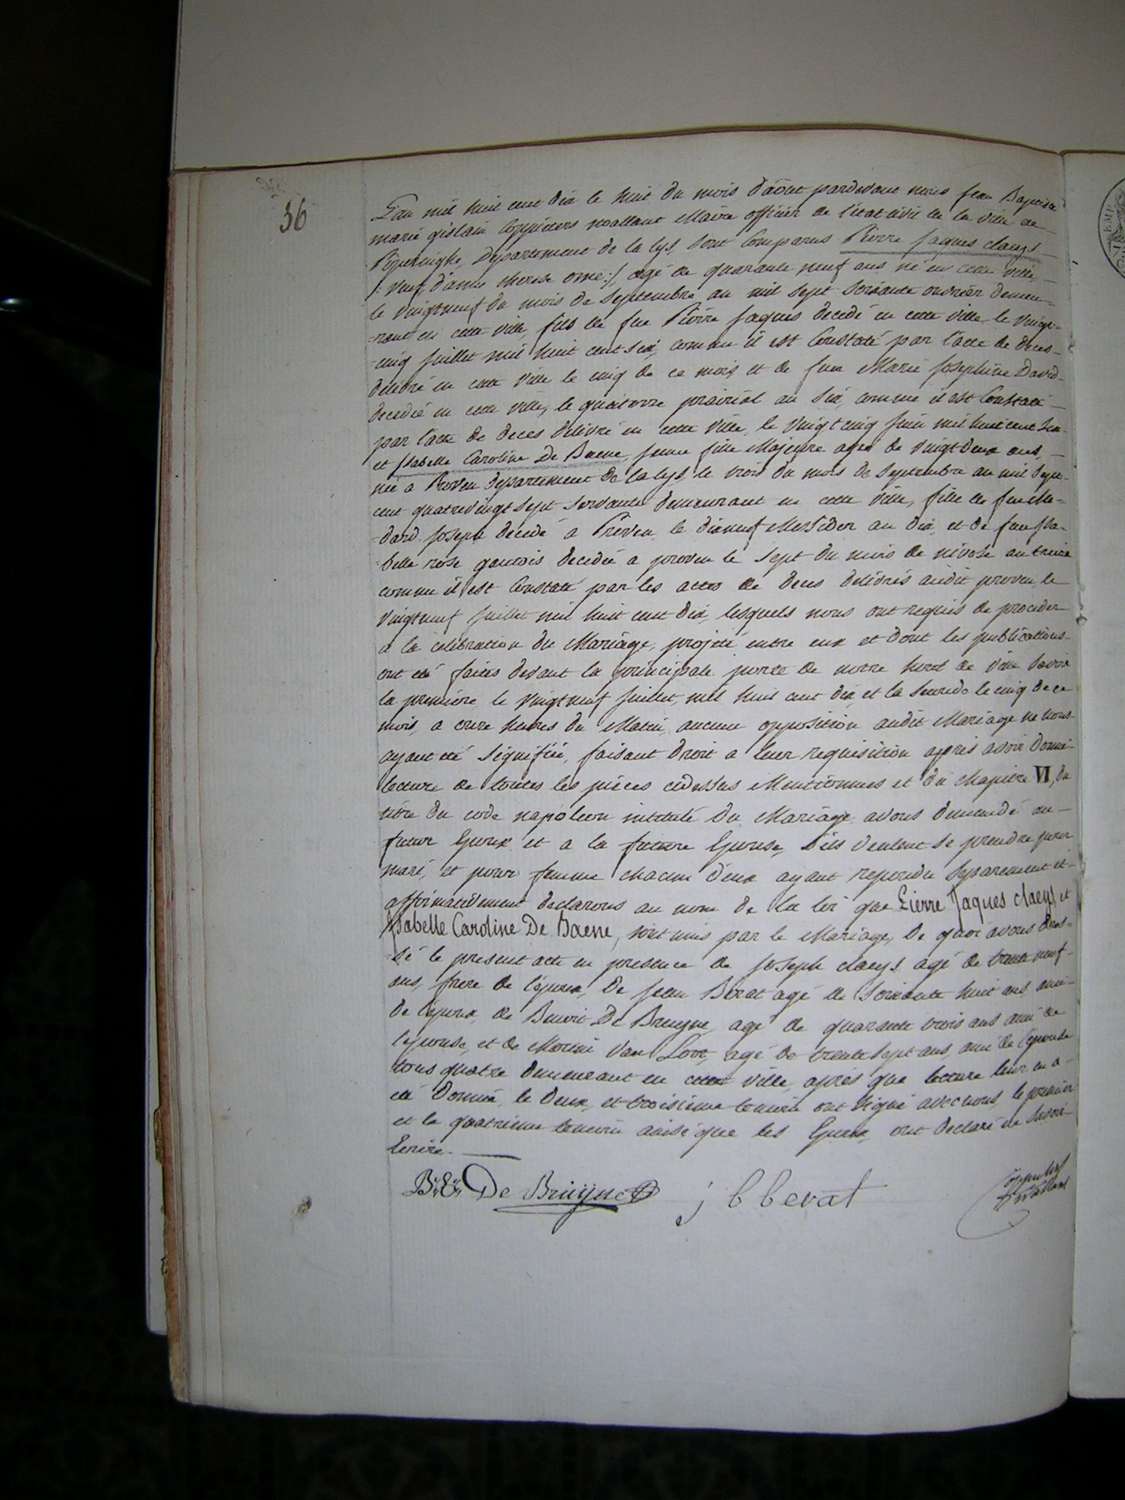 36
L'an mil huit cent dix le huit du mois d'août pardevant nous Jean Baptiste
marie gislain Coppieters Maire officier de l'état civil de la ville de
Poperinghe Département de la Lys, sont Comparus Pierre Jaques claeys
/: veuf d'anne therese :/ agé de quarante neuf ans né en cette ville,
le vingtneuf du mois de Septembre an mil sept soixante ouvrier demeu-
-rant en cette ville, fils de feu Pierre Jaques decedé en cette ville le vingt-
-cinq juillet mil huit cent six, comme il est Constaté par l'acte de deces
délivré en cette ville le cinq de ce mois, et de feue Marie Josephine David
decedée en cette ville, le quatorze prairial an six, comme il est Constaté
par l'acte de deces délivré en cette ville, le vingt cinq juin mil huit cent
et Isabelle Caroline De Baene, jeune fille Majeure agée de vingt deux ans,
née a Proven Département de la Lys, le trois du mois de Septembre an mil Sept
cent quatrevingt sept Servante demeurant en cette ville, fille de feu Me-
-dard Joseph decedé à Proven, le dixneuf Messidor an dix, et de feue Isa-
-belle rose decedée a proven le Sept du mois de nivose an treize
comme il est Constaté par les actes de deces délivrés audit proven le
vingtneuf juillet mil huit cent dix, lesquels nous ont requis de proceder
a la célébration du Mariage, projeté entre eux et dont les publications
ont été faites devant la principale porte de notre hotel de ville Savoir
la première le vingtneuf juillet, mil huit cent dix, et la Seconde le cinq de ce
mois, a onze heures du Matin, aucune opposition audit Mariage ne nous
ayant été Signifiée, faisant droit a leur requisition après avoir donné
lecture de toutes les pièces cidessus Mentionnées et du chapitre VI, du
titre du code napoléon intitulé Du Mariage avons demandé au
futur Epoux et a la future Epouse, S'ils veulent se prendre pour
mari, et pour femme chacun d'eux ayant repondu Separement et
affirmativement declarons au nom de la loi que Pierre Jaques claeys, et
Isabelle Caroline De Baene, sont unis par le Mariage, De quoi avons dres-
-sé le present acte en presence de Joseph claeys agé de trente neuf
ans, frere de l'époux, De Jean Berat agé de Soixante huit ans ami
de l'epoux, de Benoit De Bruyne, agé de quarante trois ans ami de
l'epouse, et de Martin Van Loo, agé de trente Sept ans, ami de l'epouse
tous quatre demeurant en cette ville, après que lecture leur en a
été Donnée, le deux, et troisieme temoin ont Signé avec nous le premier
et le quatrieme temoin ainsi que les Epoux, ont declaré ne Savoir
Ecrire.
De Bruyne
j b berat